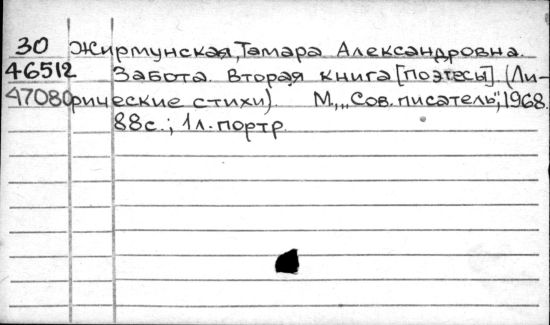 30 Жирмунская, Тамара Александровна.
46512 Забота. Вторая книга [поэтессы]. (Ли-
47080 рические стихи). М., „Сов. писатель", 1968.
88с.; 1л. портр.